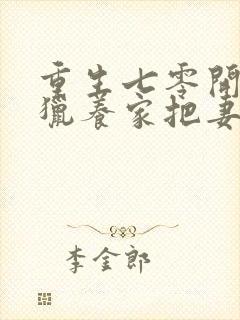 重生七零開
獵養家把妻
李金郎